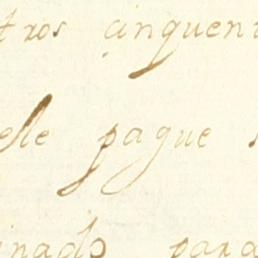 tros cinquen
ele pague
inado para